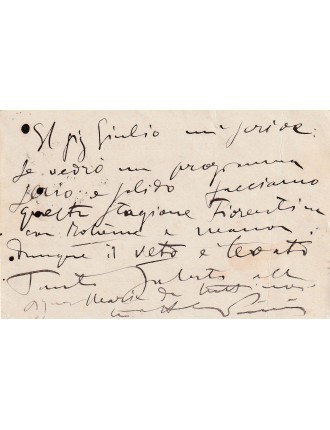 Il sig Giulio mi scrive:
Se vedrò un programma
serio e solido facciamo
questa stagione Fiorentina
con Bohème e Manon
Dunque il veto è levato
Tanti saluti alla
Maria da